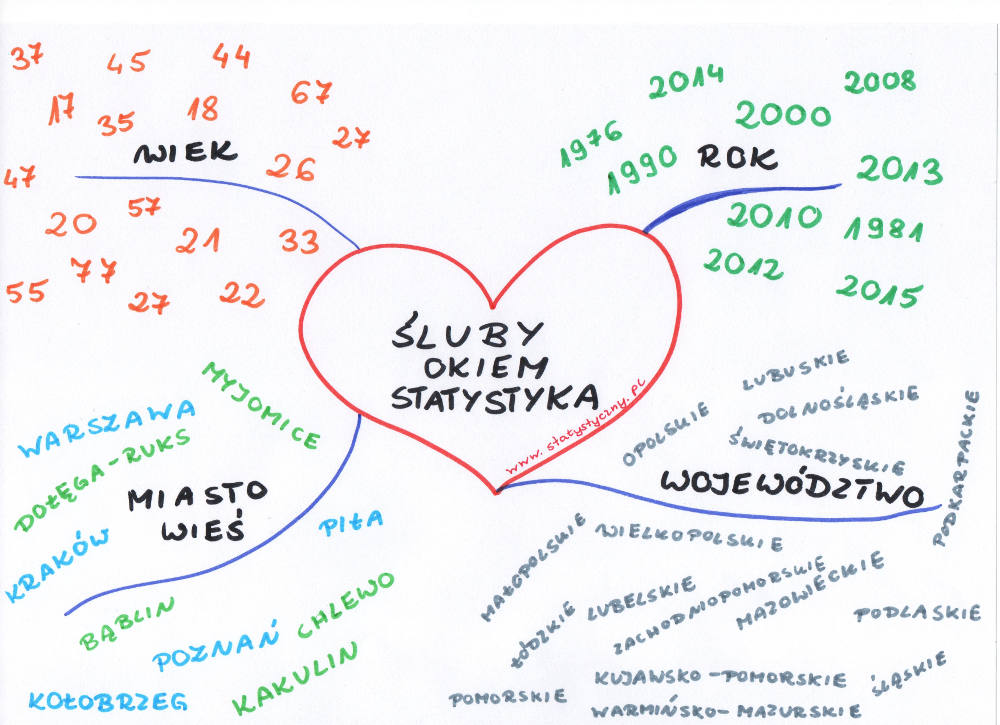 37 45 44
17 35 18 67
27
WIEK
26
47
20 57
21 33
55 77
27 22
2014 2008
2000
1976
1990 ROK
2013
2010 1981
2012
2015
ŚLUBY
OKIEM
STATYSTYKA
www.statystyczny.pl
MYJOMICE
WARSZAWA
DOŁĘGA-RUKS
MIASTO
WIEŚ
PIŁA
KRAKÓW
BĄBLIN
CHLEWO
POZNAŃ
KAKULIN
KOŁOBRZEG
LUBUSKIE
DOLNOŚLĄSKIE
OPOLSKIE
ŚWIĘTOKRZYSKIE
PODKARPACKIE
WOJEWÓDZTWO
MAŁOPOLSKIE
WIELKOPOLSKIE
ŁÓDZKIE
LUBELSKIE
ZACHODNIOPOMORSKIE
MAZOWIECKIE
PODLASKIE
KUJAWSKO-POMORSKIE
ŚLĄSKIE
POMORSKIE
WARMIŃSKO-MAZURSKIE